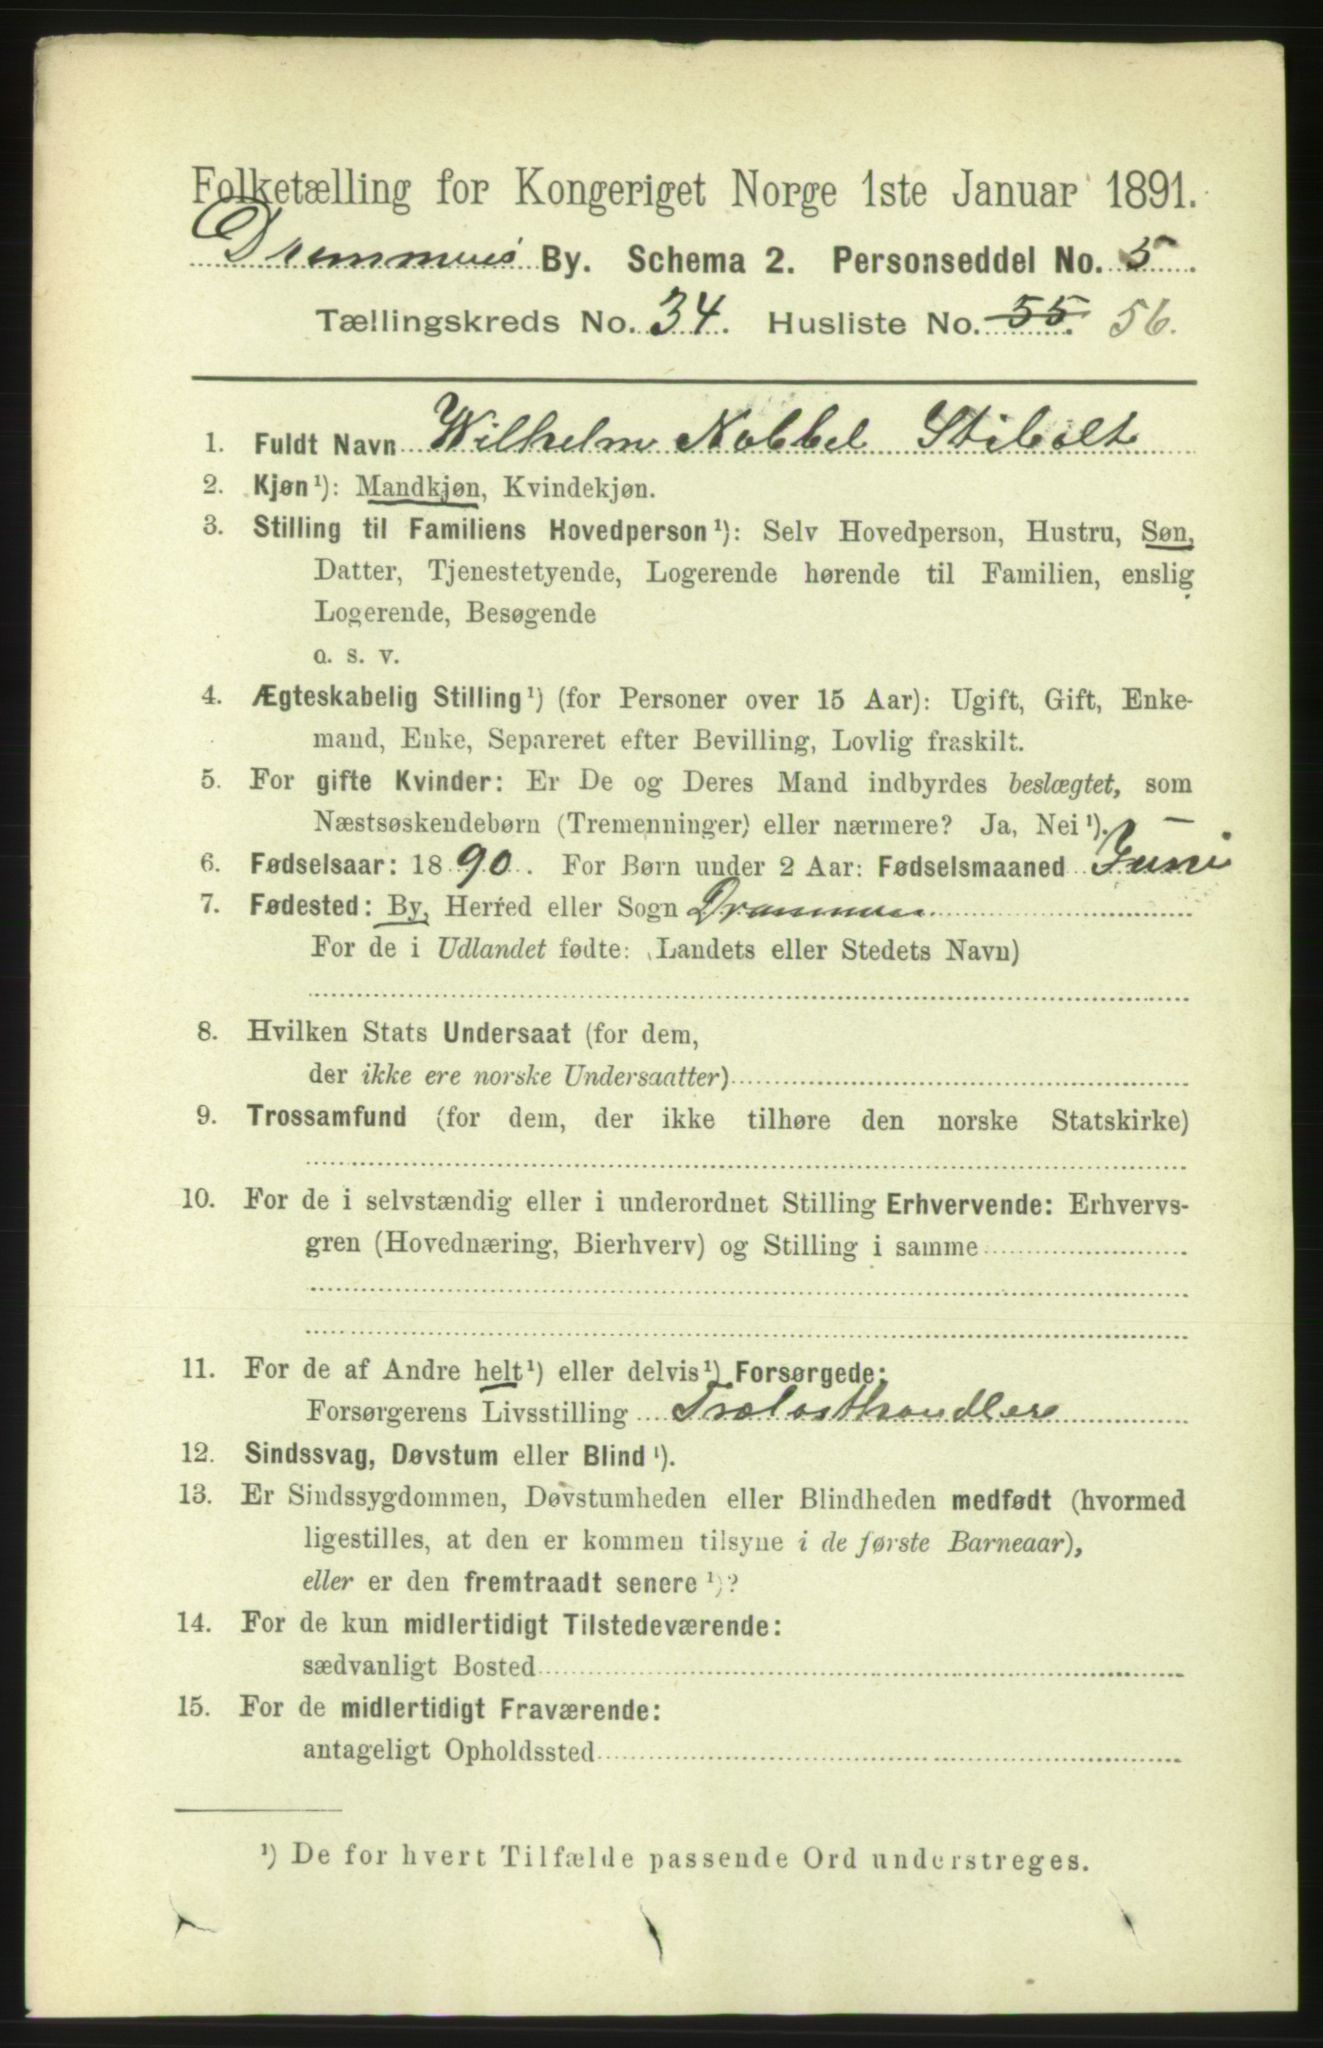 Folketælling for Kongeriget Norge 1ste Januar 1891.
Drammens By. Schema 2. Personseddel No. 5
Tællingskreds No. 34. Husliste No. 55. 56.
1. Fuldt Navn Wilhelm Nobbel Stibolt
2. Kjøn¹): Mandkjøn, Kvindekjøn.
3. Stilling til Familiens Hovedperson¹): Selv Hovedperson, Hustru, Søn,
Datter, Tjenestetyende, Logerende hørende til Familien, enslig
Logerende, Besøgende
o. s. v.
4. Ægteskabelig Stilling¹) (for Personer over 15 Aar): Ugift, Gift, Enke-
mand, Enke, Separeret efter Bevilling, Lovlig fraskilt.
5. For gifte Kvinder: Er De og Deres Mand indbyrdes beslægtet, som
Næstsøskendebørn (Tremenninger) eller nærmere? Ja, Nei¹). —
6. Fødselsaar: 1890. For Børn under 2 Aar: Fødselsmaaned Juni
7. Fødested: By, Herred eller Sogn Drammen
For de i Udlandet fødte: (Landets eller Stedets Navn)
8. Hvilken Stats Undersaat (for dem,
der ikke ere norske Undersaatter)
9. Trossamfund (for dem, der ikke tilhøre den norske Statskirke)
10. For de i selvstændig eller i underordnet Stilling Erhvervende: Erhvervs-
gren (Hovednæring, Bierhverv) og Stilling i samme
11. For de af Andre helt¹) eller delvis¹) Forsørgede:
Forsørgerens Livsstilling Trælasthandler
12. Sindssvag, Døvstum eller Blind¹).
13. Er Sindssygdommen, Døvstumheden eller Blindheden medfødt (hvormed
ligestilles, at den er kommen tilsyne i de første Barneaar),
eller er den fremtraadt senere¹)?
14. For de kun midlertidigt Tilstedeværende:
sædvanligt Bosted
15. For de midlertidigt Fraværende:
antageligt Opholdssted
¹) De for hvert Tilfælde passende Ord understreges.